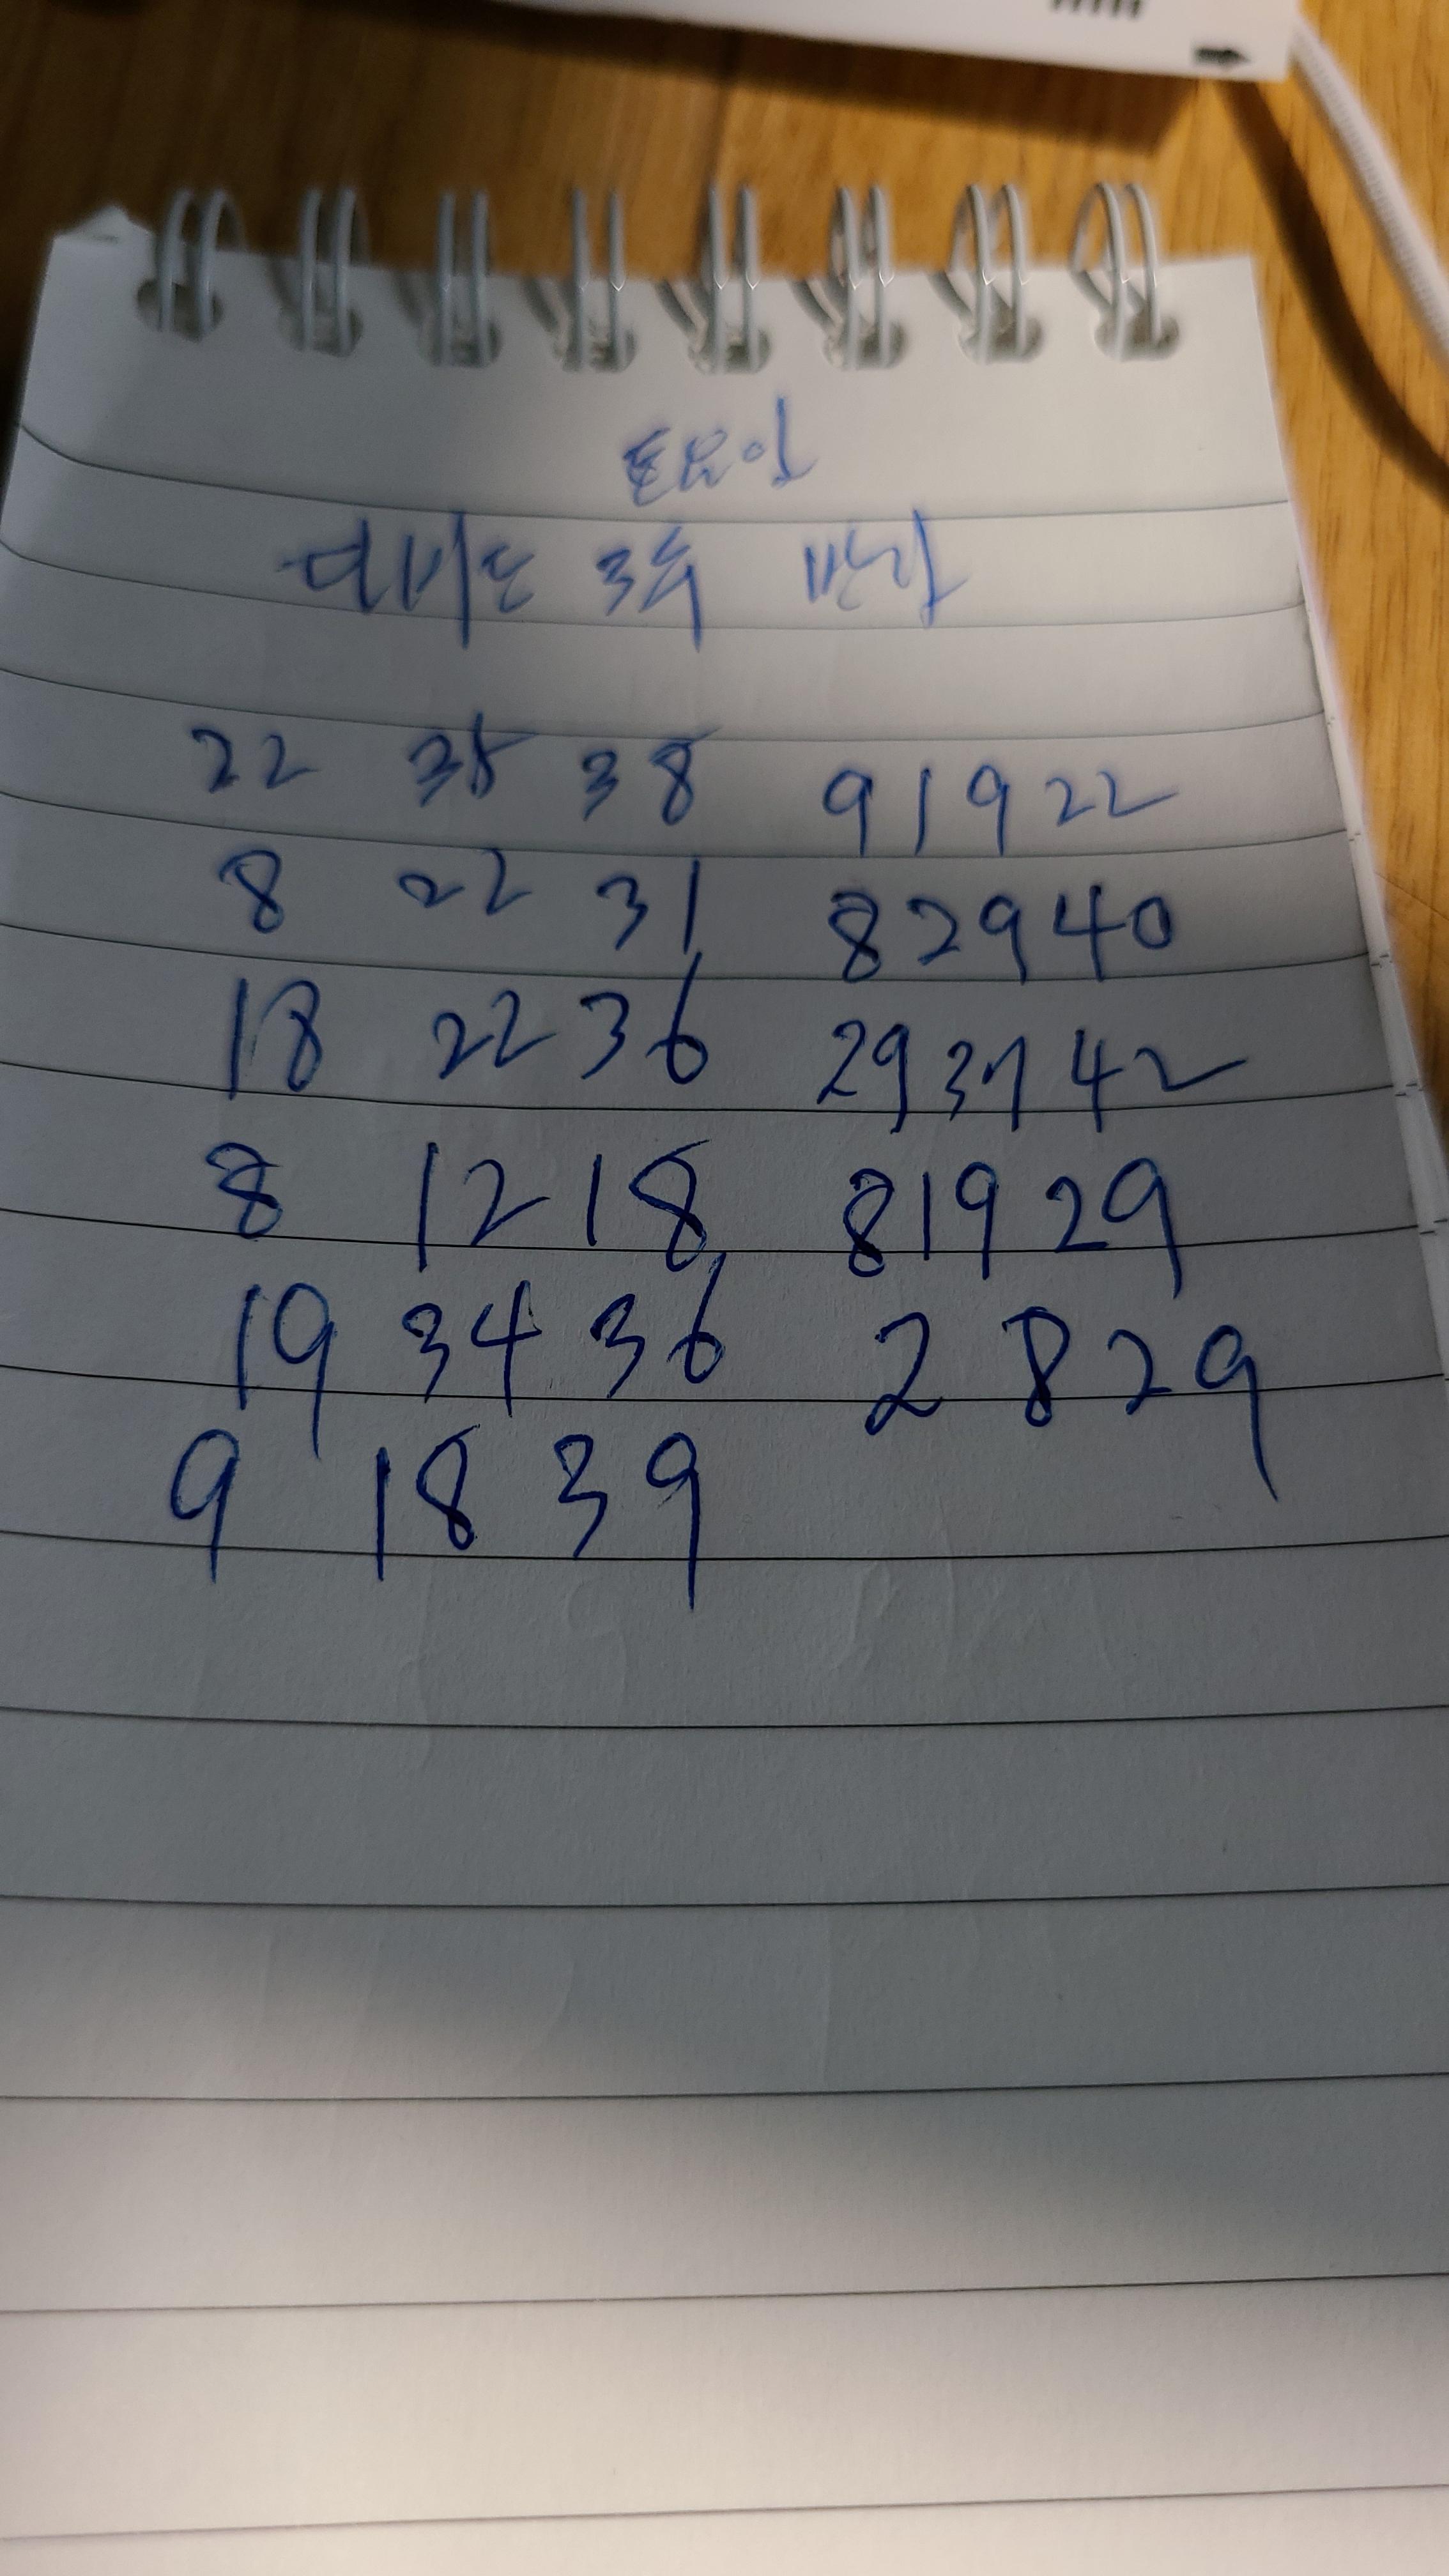 토요일
데비존 3수 만남
22 35 38 9 19 22
8 22 31 8 29 40
18 22 36 29 37 42
8 12 18 8 19 29
19 34 36 2 8 29
9 18 39